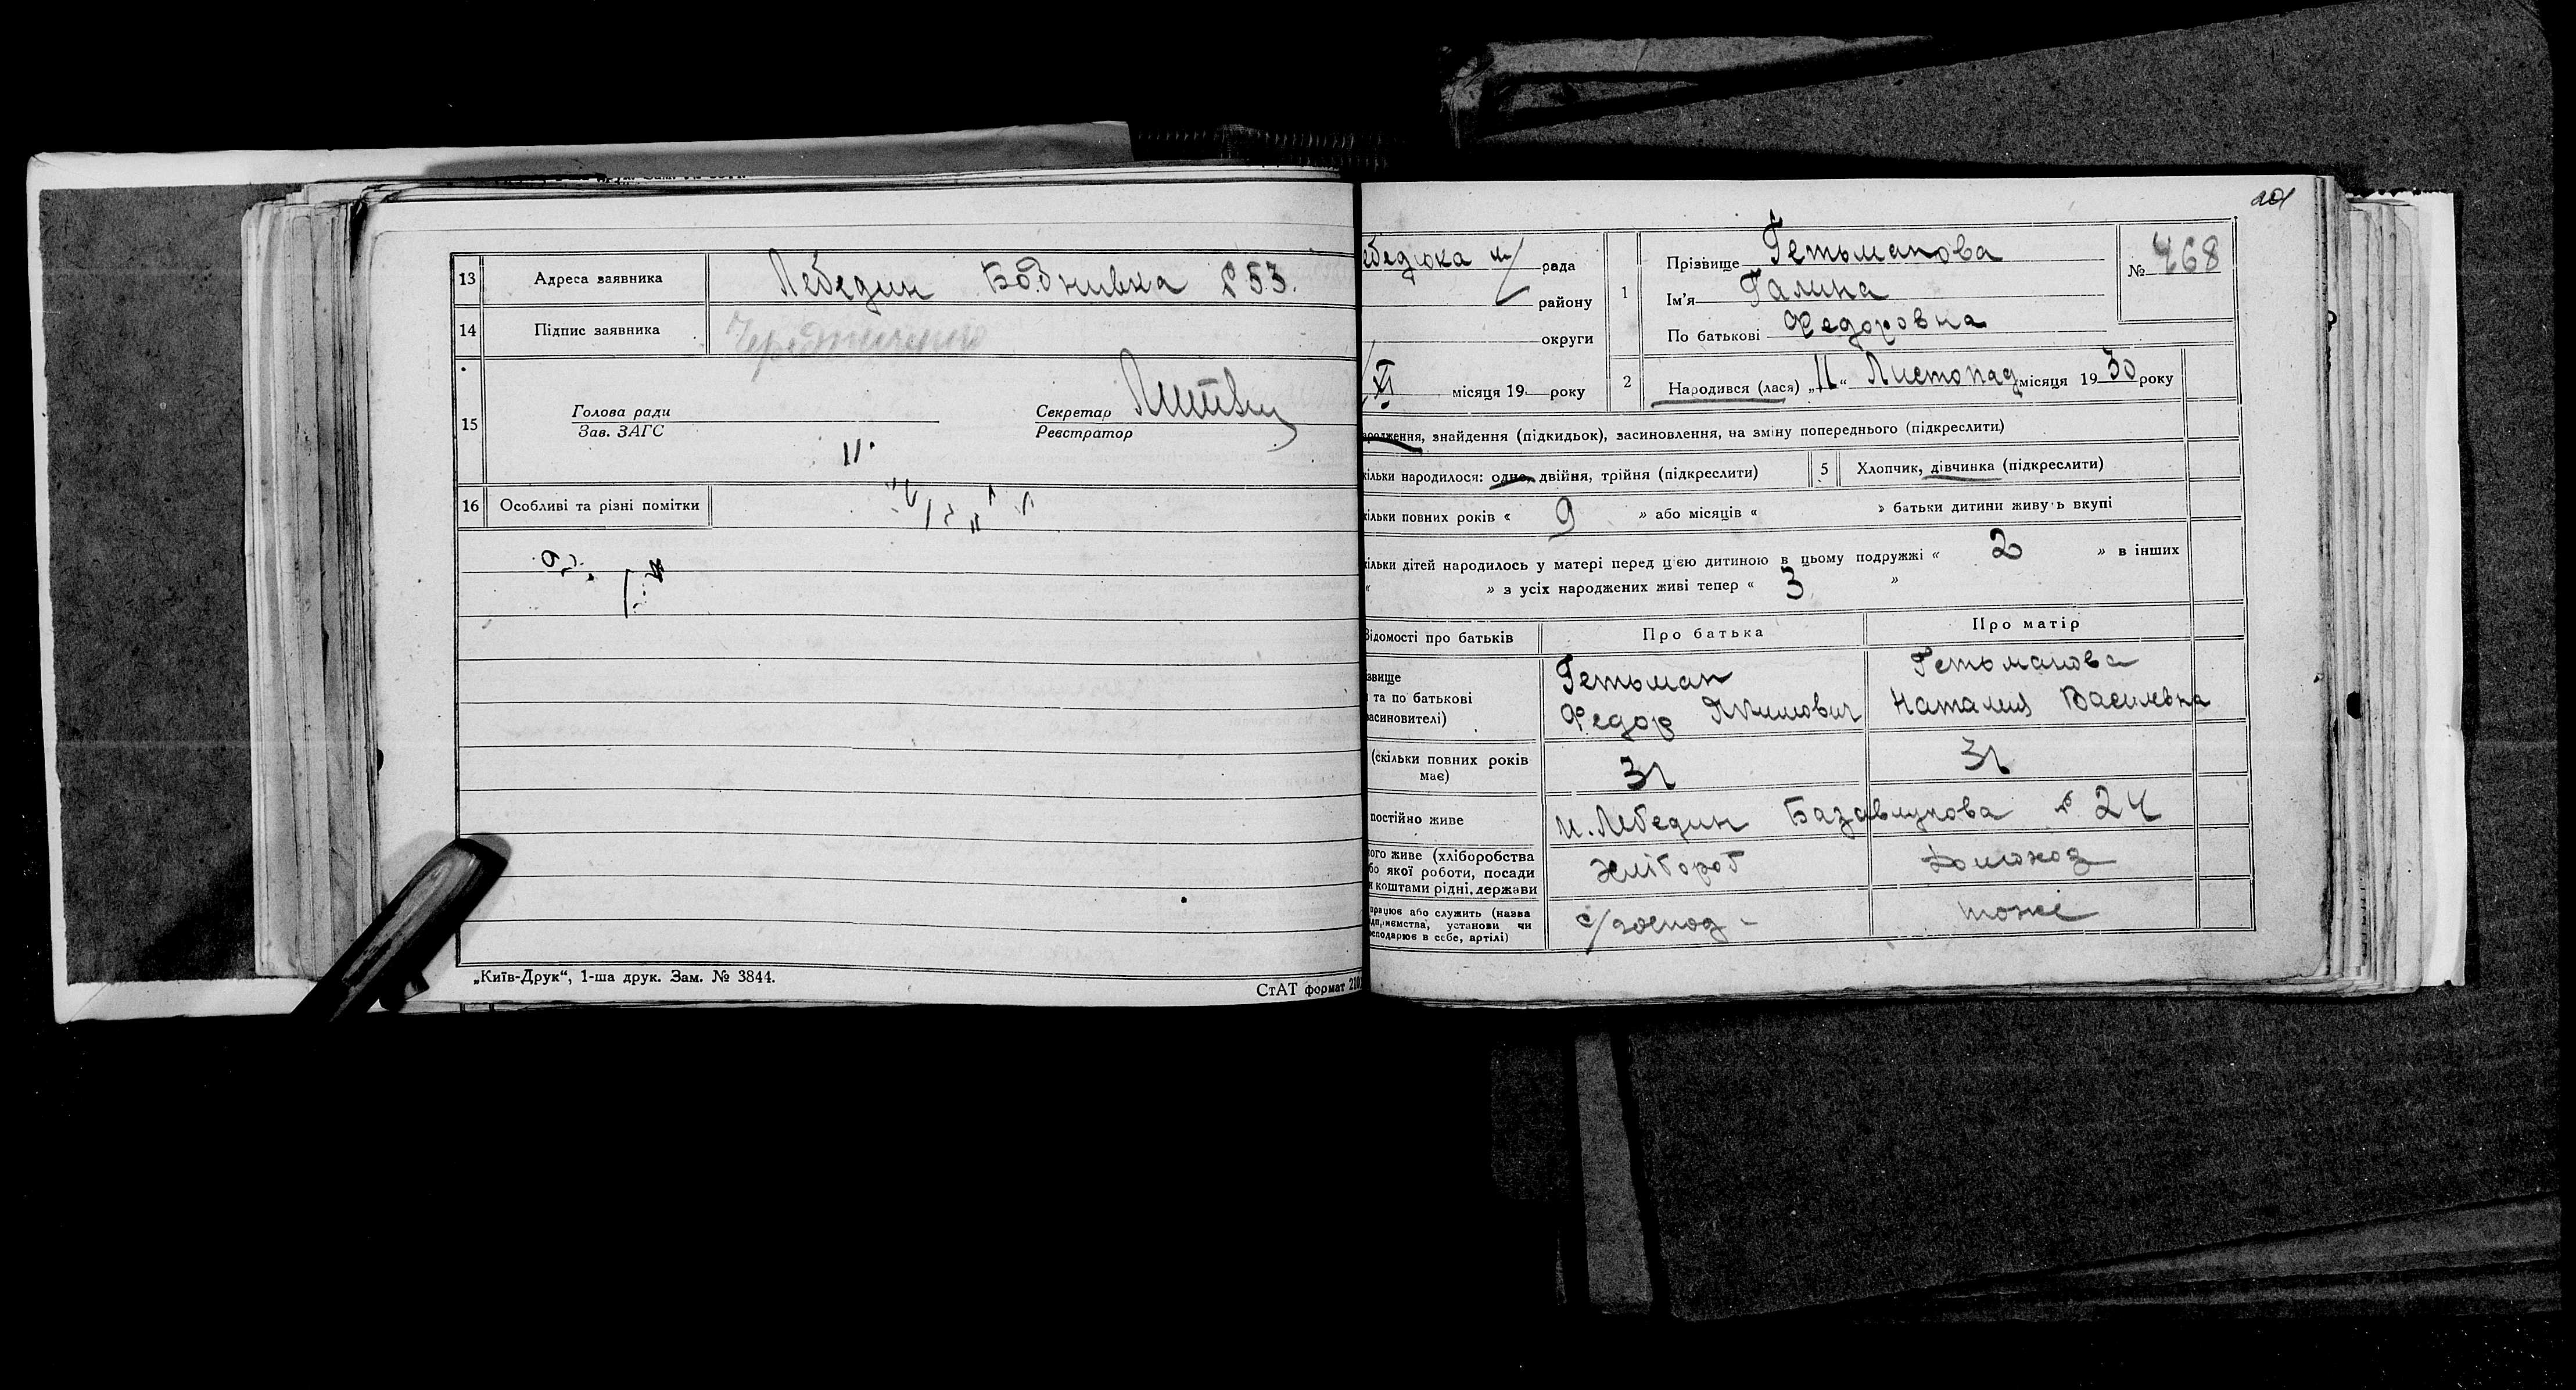 13 Адреса заявника Лебедин Бобнивка № 53.
14 Підпис заявника
15 Голова ради
Зав. ЗАГС
Секретар
Реєстратор
16 Особливі та різні помітки
„Київ-Друк“, 1-ша друк. Зам. № 3844.
СтАТ формат 210
201
рада
району
округи
XI місяця 19 року
1 Прізвище Гетьманова
Ім’я Галина
По батькові Федоровна
№ 468
2 Народився (лася) „11“ Листопад місяця 1930 року
ародження, знайдення (підкидьок), засиновлення, на зміну попереднього (підкреслити)
кільки народилося: одне, двійня, трійня (підкреслити)
5 Хлопчик, дівчинка (підкреслити)
кільки повних років « 9 » або місяців « » батьки дитини живуть вкупі
кільки дітей народилось у матері перед цією дитиною в цьому подружжі « 2 » в інших
« » з усіх народжених живі тепер « 3 »
Відомості про батьків Про батька Про матір
звище Гетьман Гетьманова
та по батькові Федор Якимович Наталия Василевна
асиновителі)
(скільки повних років має) 31 31
постійно живе м. Лебедин Базавлукова № 24
ого живе (хліборобства Хлібороб Домохоз
бо якої роботи, посади
и коштами рідні, держави
працює або служить (назва с/господ - тоже
ідприємства, установи чи
осподарює в себе, артілі)